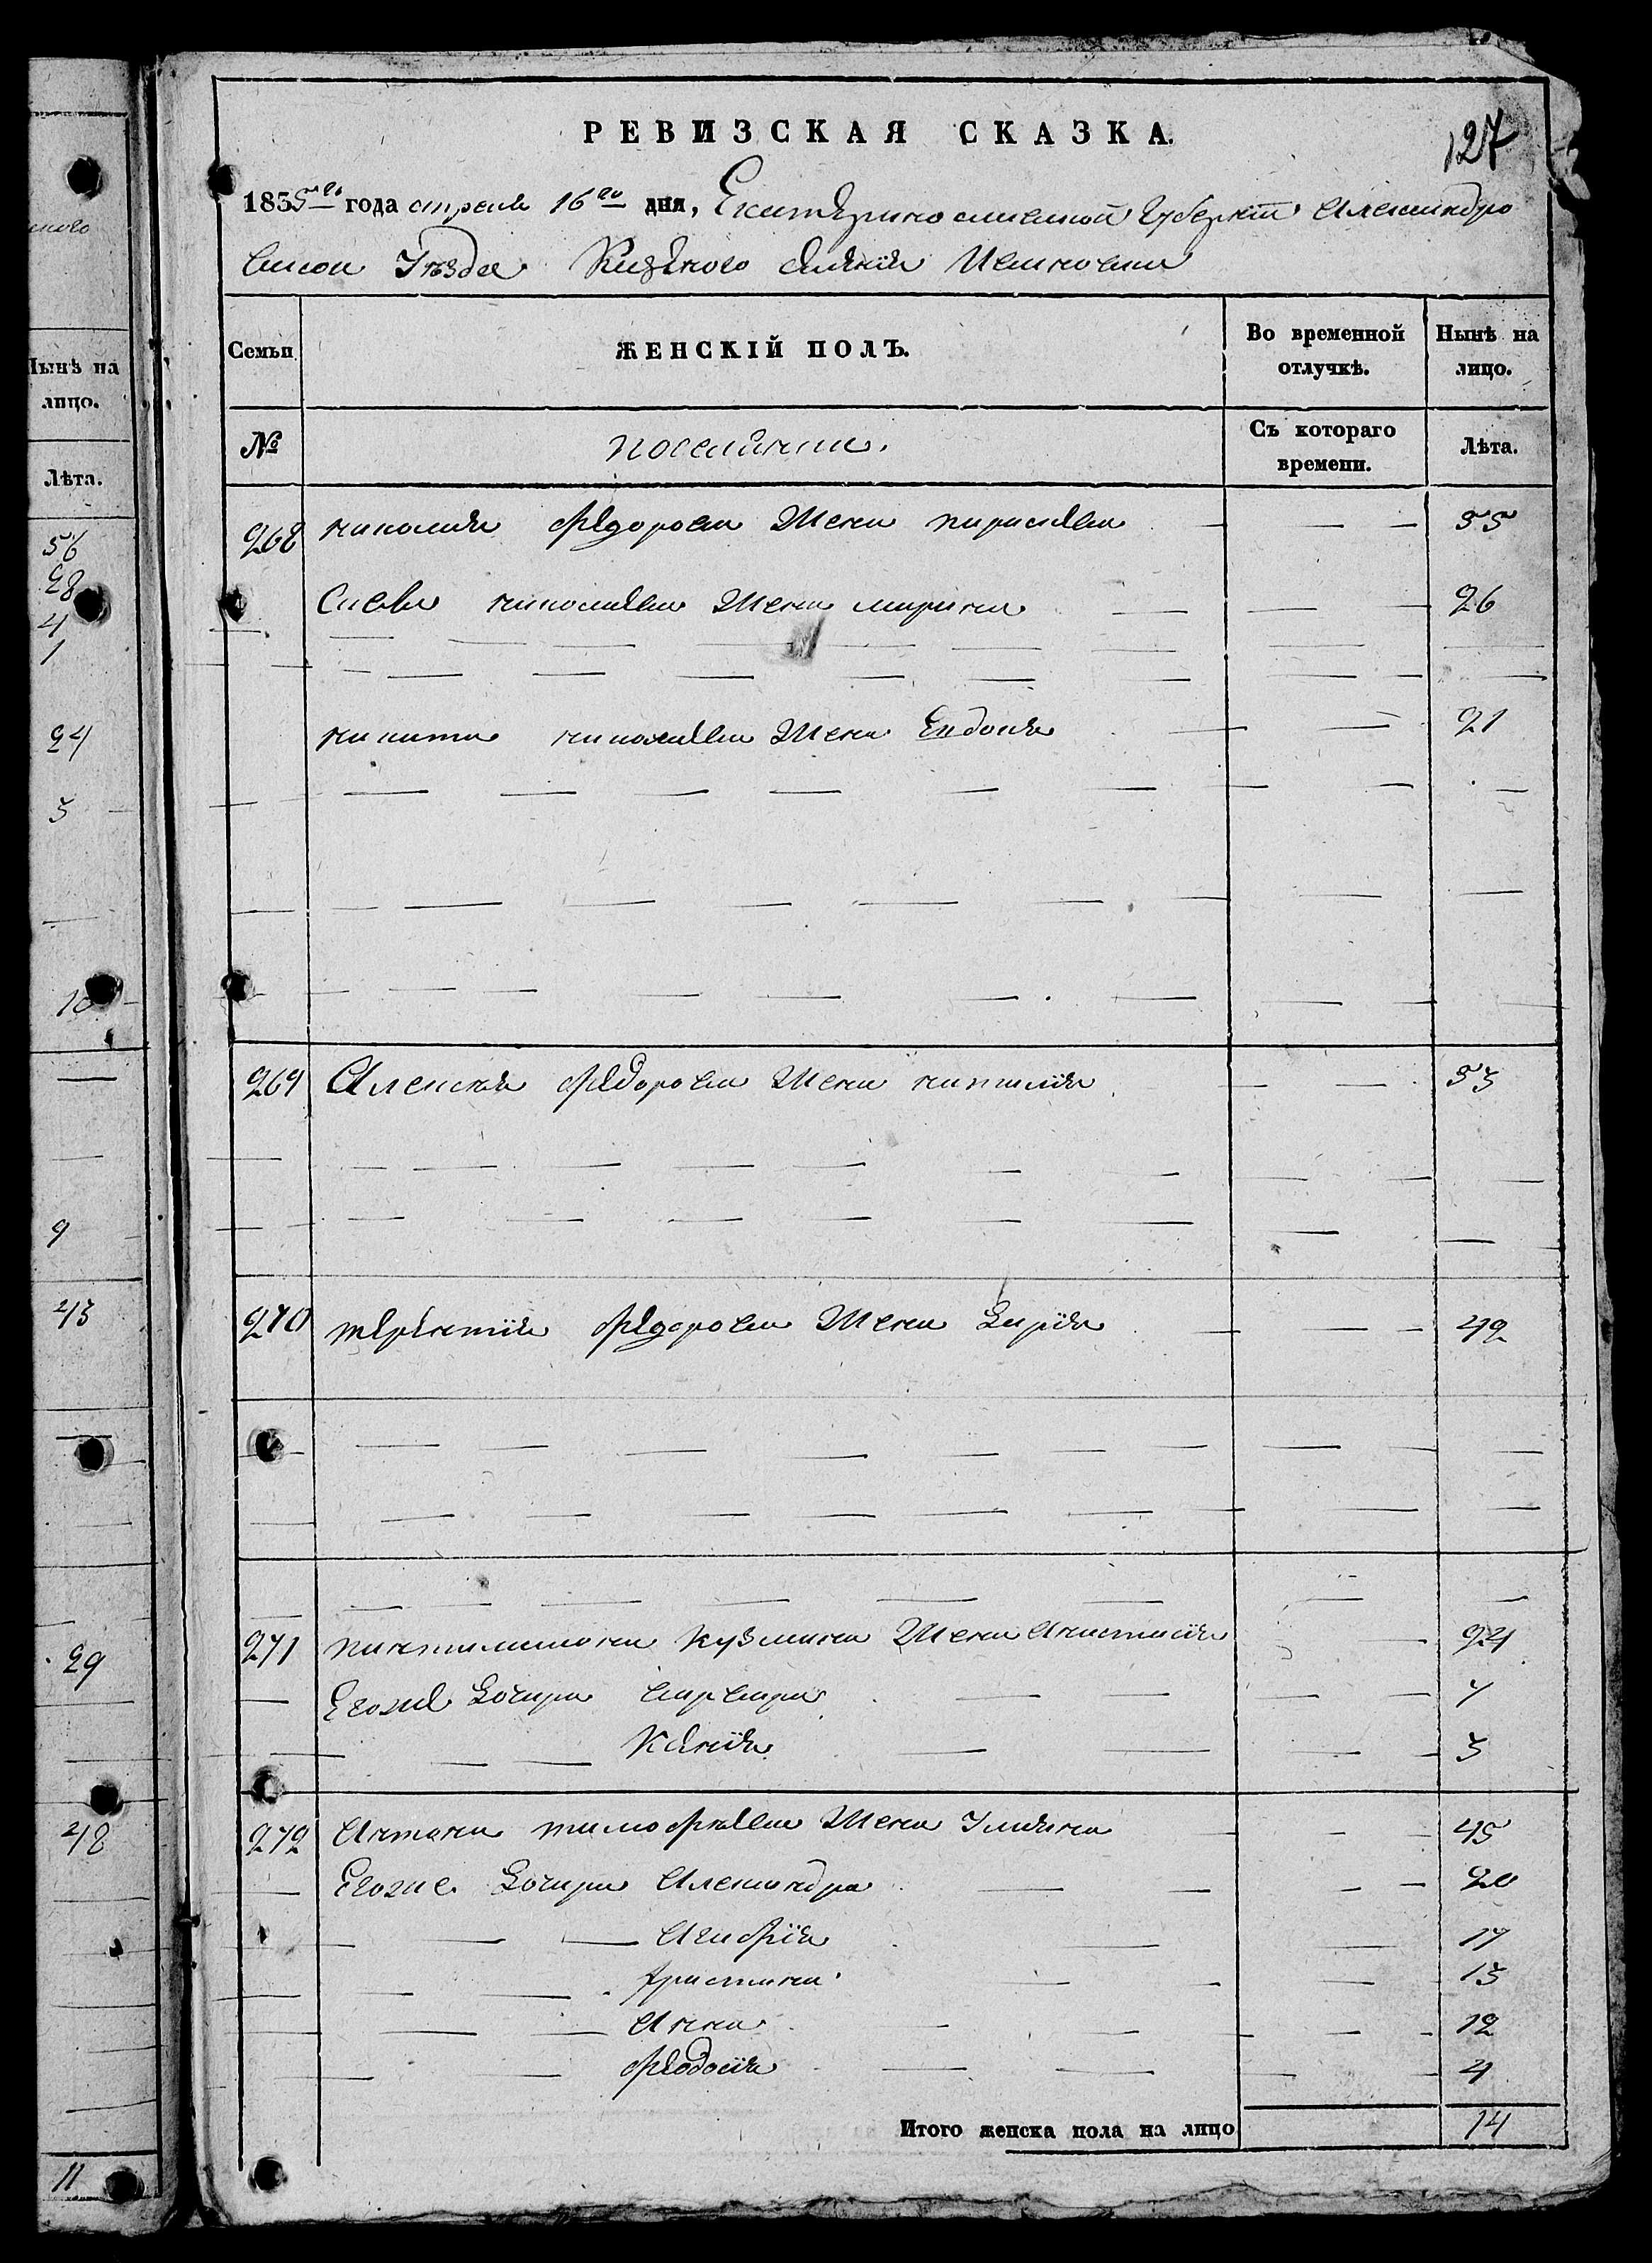 127
РЕВИЗСКАЯ СКАЗКА.
1835го года апреля 16го дня, Екатеринославской Губерніи Александро
вской Уѣзда Казенного селенія
Семьи
ЖЕНСКІЙ ПОЛЪ.
Во временной отлучкѣ.
Нынѣ на лицо.
№
поселянки.
Съ котораго времени.
Лѣта.
268 николая федорова жена параскева 55
Савы николаева жена марина 26
никиты николаева жена Евдокія 21
269 Алексея федорова жена наталія 53
270 терентія федорова жена Дарія 42
271 пантилимона кузмина жена Анастасія 24
Егоже Дочери варвара 7
Ксенія 3
272 Антона тимофеева жена Улияна 45
Егоже Дочери Александра 20
Агафія 17
христина 13
Анна 12
феодосія 4
Итого женска пола на лицо 14
Нынѣ на
лицо.
Лѣта.
56
28
4
1
24
3
10
9
43
29
48
11